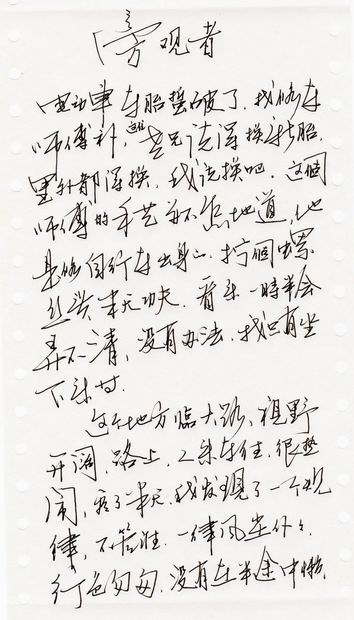 旁观者
电动单车胎爆破了，找修车
师傅补，他说得换新胎，
里外都得换，我说换吧，这個
师傅的手艺并不怎地道，他
是修自行车出身的，拧個螺
丝半天功夫，看来一時半会
弄不清，没有办法，我只有坐
下来等
这个地方临大路，視野
开阔，路上人来车往，很热
闹，看了半天，我发現了一个规
律，不管谁，一律风尘仆々，
行色匆匆，没有在半途中